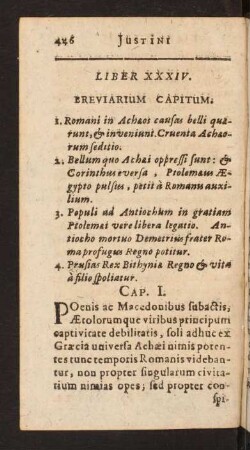 426 JUSTINI
LIBER XXXIV.
BREVIARIUM CAPITUM.
1. Romani in Achaos causas belli quæ-
runt, & inveniunt. Cruenta Achæo-
rum seditio.
2. Bellum quo Achæi oppressi sunt: &
Corinthus eversa, Ptolemæus Æ-
gypto pulsus, petit à Romanis auxi-
lium.
3. Populi ad Antiochum in gratiam
Ptolemæi vere libera legatio. An-
tiocho mortuo Demetrius frater Ro-
ma profugus Regno potitur.
4. Prusias Rex Bithyniæ Regno & vita
à filio spoliatur.
CAP. I.
POenis ac Macedonibus subactis,
Ætolorumque viribus principum
captivitate debilitatis, soli adhuc ex
Græcia universa Achæi nimis poten-
tes tunc temporis Romanis videban-
tur, non propter singularum civita-
tium nimias opes; sed propter con-
spi-